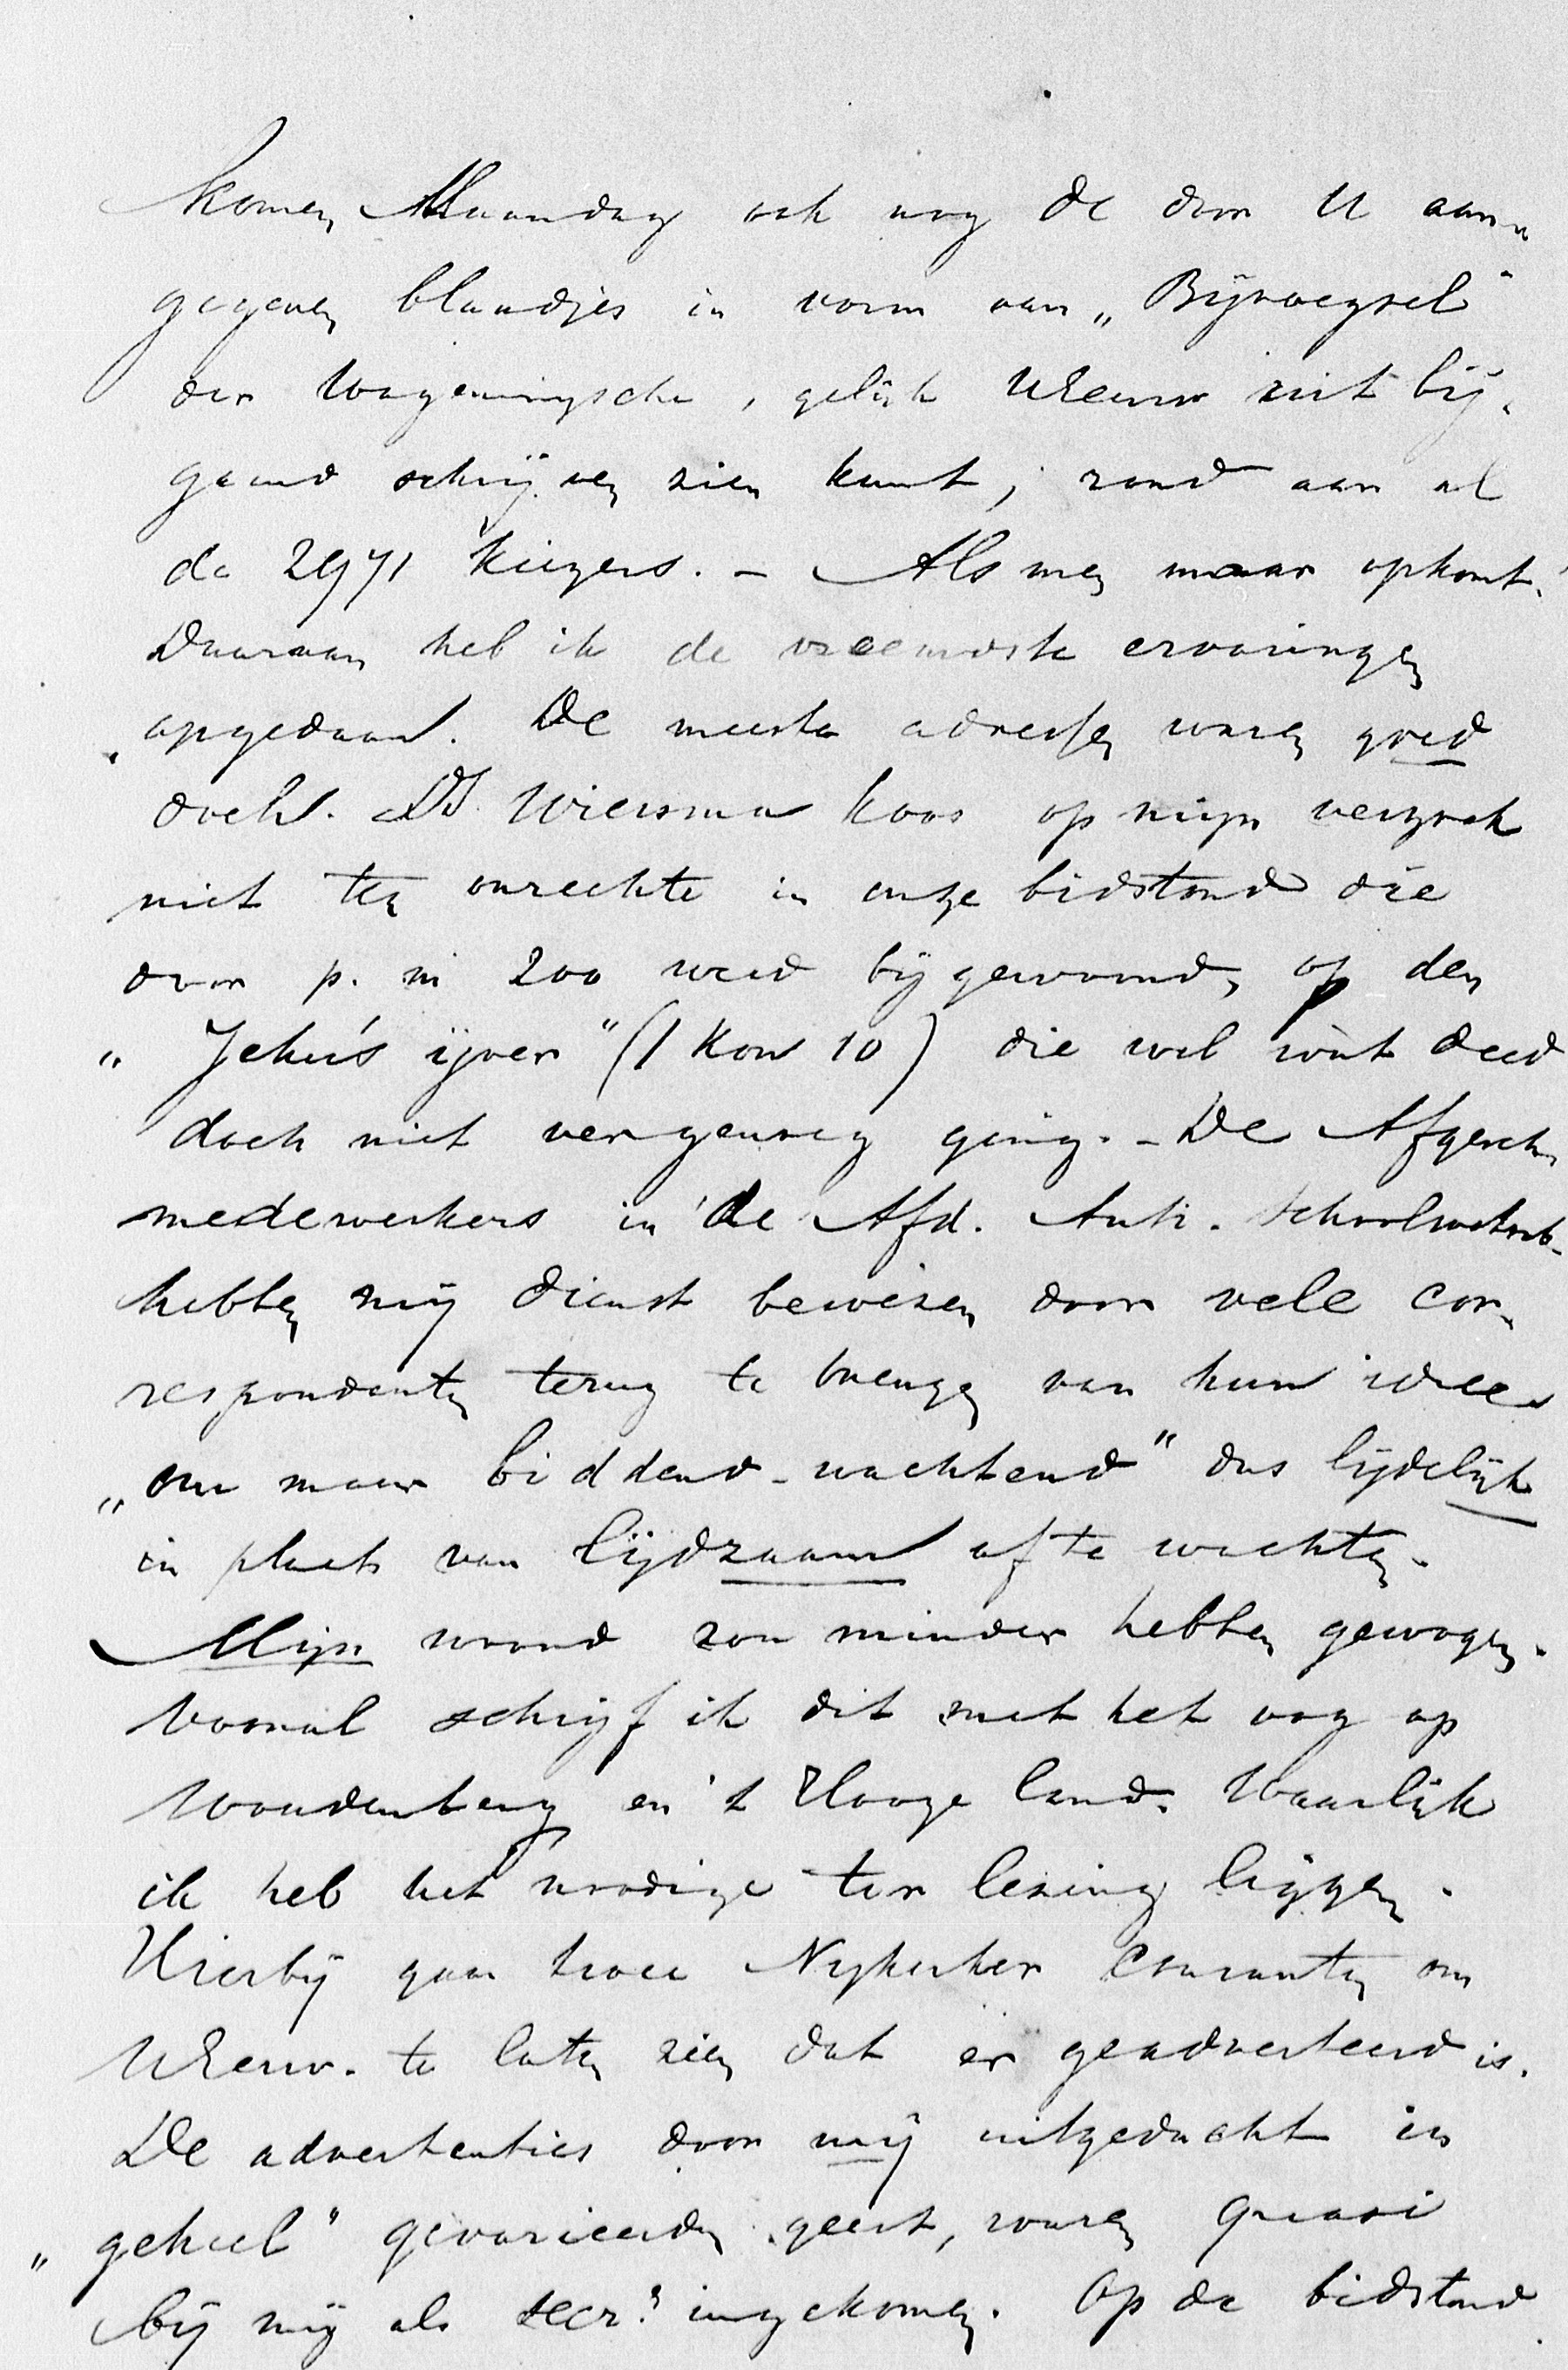 komen Maandag ook nog de door U aan-
gegeven blaadjes in vorm van „Bijvoegsel"
der Wageningsche, gelijk UEerw uit bij-
gaand schrijven zien kunt, rond aan al
de 2971 kiezers. – Als men maar opkomt!
Daaraan heb ik de vreemdste ervaringen
opgedaan. De meeste adressen waren goed
doch. Ds Wiersma koos op mijn verzoek
niet ten onrechte in onze bidstond die
door p. m 200 werd bijgewoond, op den
„Jehu's ijver" (1 Kon 10) die wel wàt deed
doch niet ver genoeg ging. – De Afgesch.
medewerkers in de Afd. Anti-Schoolwetverb.
hebben mij dienst bewezen door vele cor-
respondenten terug te brengen van hun idee
„om maar biddend-wachtend" dus lijdelijk
in plaats van lijdzaam af te wachten.
Mijn woord zou minder hebben gewogen.
Vooral schrijf ik dit met het oog op
Woudenberg en 't Hooge land. Waarlijk
ik heb het noodige ter lezing liggen.
Hierbij gaan twee Nijkerker Couranten om
UEerw. te laten zien dat er geadverteerd is.
De advertenties door mij uitgedacht in
„geheel" gevarieerden geest, waren quasi
bij mij als secr. ingekomen. Op de bidstond